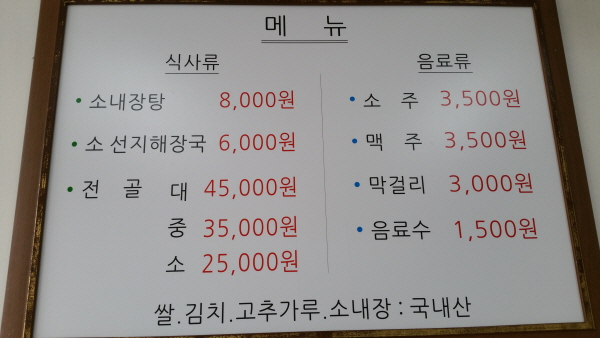 메 뉴
식사류
• 소내장탕 8,000원
• 소 선지해장국 6,000원
• 전 골 대 45,000원
중 35,000원
소 25,000원
음료류
• 소 주 3,500원
• 맥 주 3,500원
• 막걸리 3,000원
• 음료수 1,500원
쌀.김치.고추가루.소내장 : 국내산